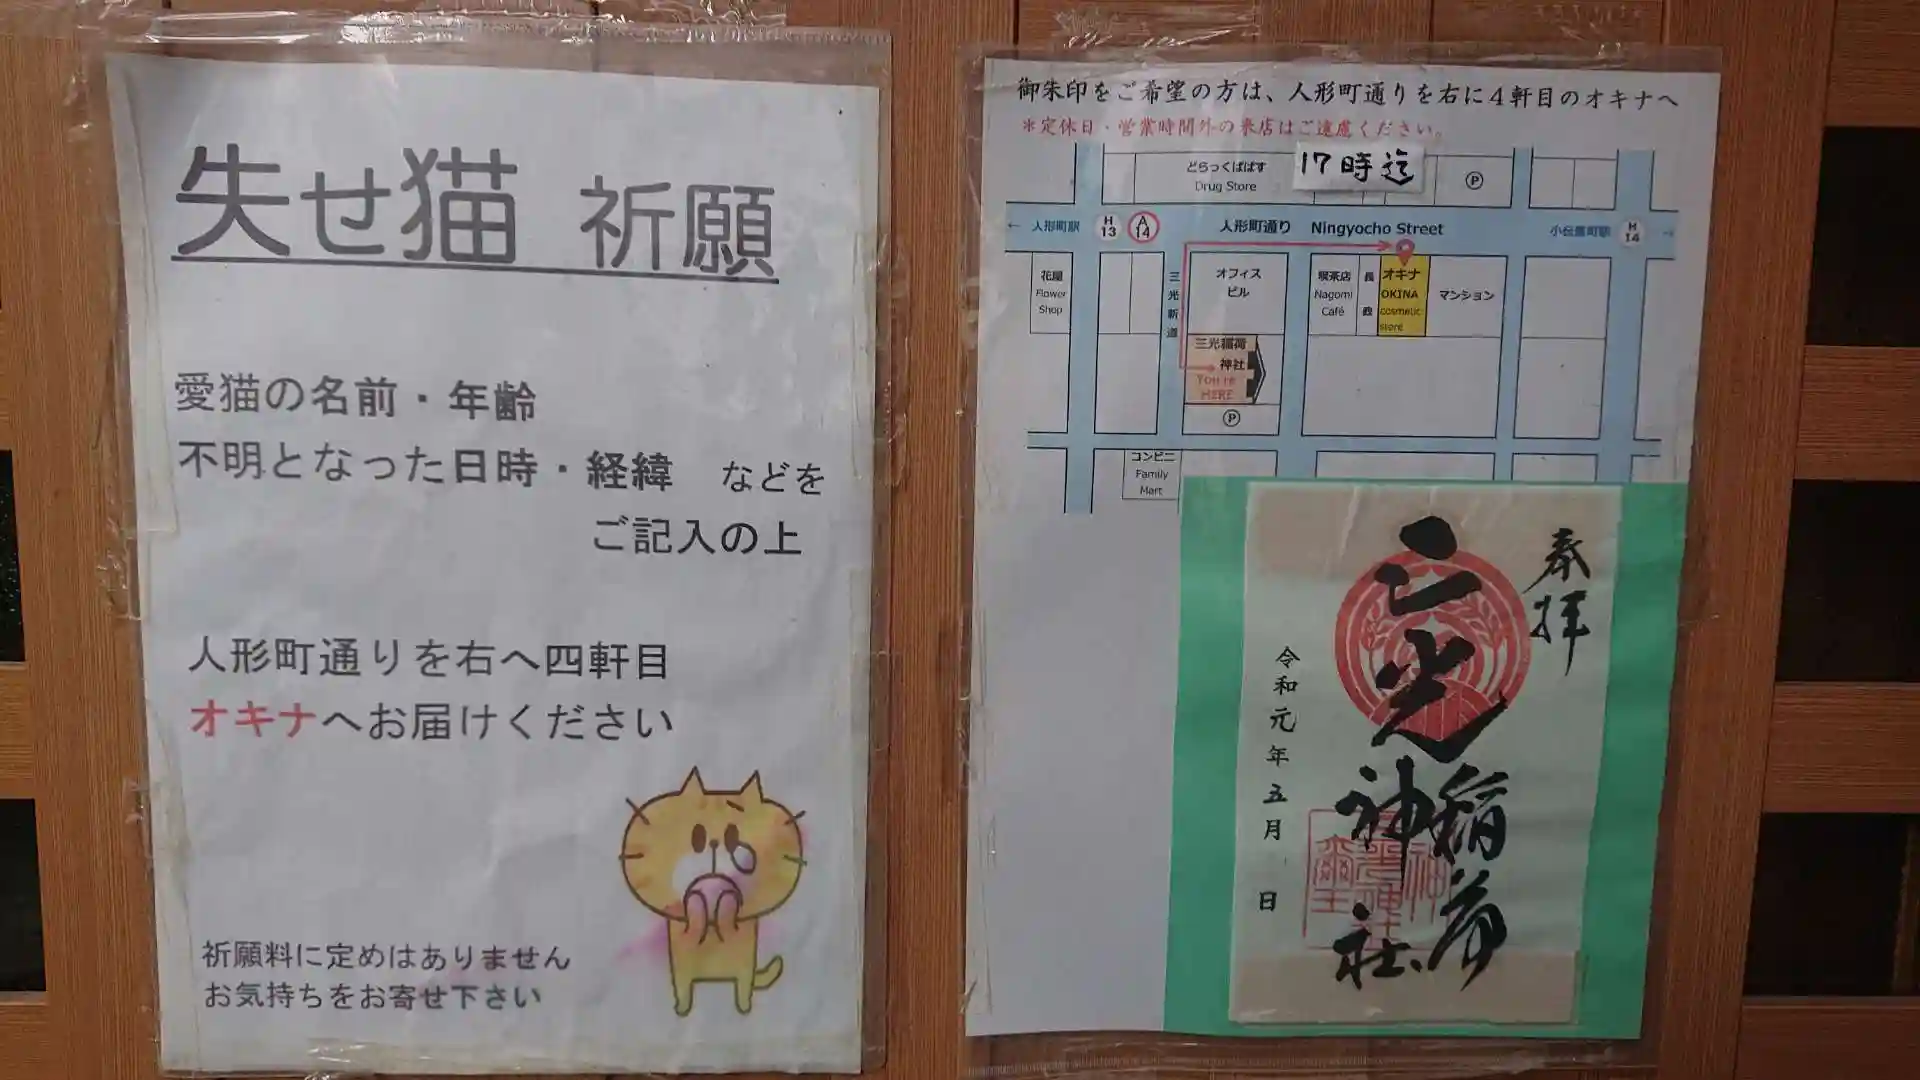 失せ猫 祈願
愛猫の名前・年齢
不明となった日時・経緯 などを
ご記入の上
人形町通りを右へ四軒目
オキナへお届けください
祈願料に定めはありません
お気持ちをお寄せ下さい
御朱印をご希望の方は、人形町通りを右に4軒目のオキナへ
*定休日・営業時間外の来店はご遠慮ください。
17時迄
どらっぐぱぱす
Drug Store
P
← 人形町駅
H
13
A
14
人形町通り Ningyocho Street
小伝馬町駅
H
14
→
花屋
Flower
Shop
三光新道
オフィス
ビル
喫茶店
Nagomi
Café
オキナ
OKINA
cosmetic
store
マンション
三光稲荷
神社
You're
HERE
P
コンビニ
Family
Mart
奉拝
三光稲荷
神社
令和元年五月 日